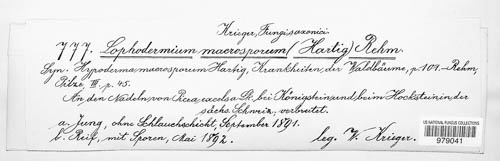 Krieger, Fungi saxonici.
777. Lophodermium macrosporum (Hartig) Rehm.
Syn. Hypoderma macrosporum Hartig, Krankheiten der Waldbäume, p. 101. – Rehm
Pilze III. p. 45.
An den Nadeln von Picea excelsa bei Königstein und beim Hockstein in der
sächs. Schweiz, verbreitet.
a. Jung, ohne Schlauchschicht, September 1891.
b. Reif, mit Sporen, Mai 1892. leg. W. Krieger.
US NATIONAL FUNGUS COLLECTIONS
979041